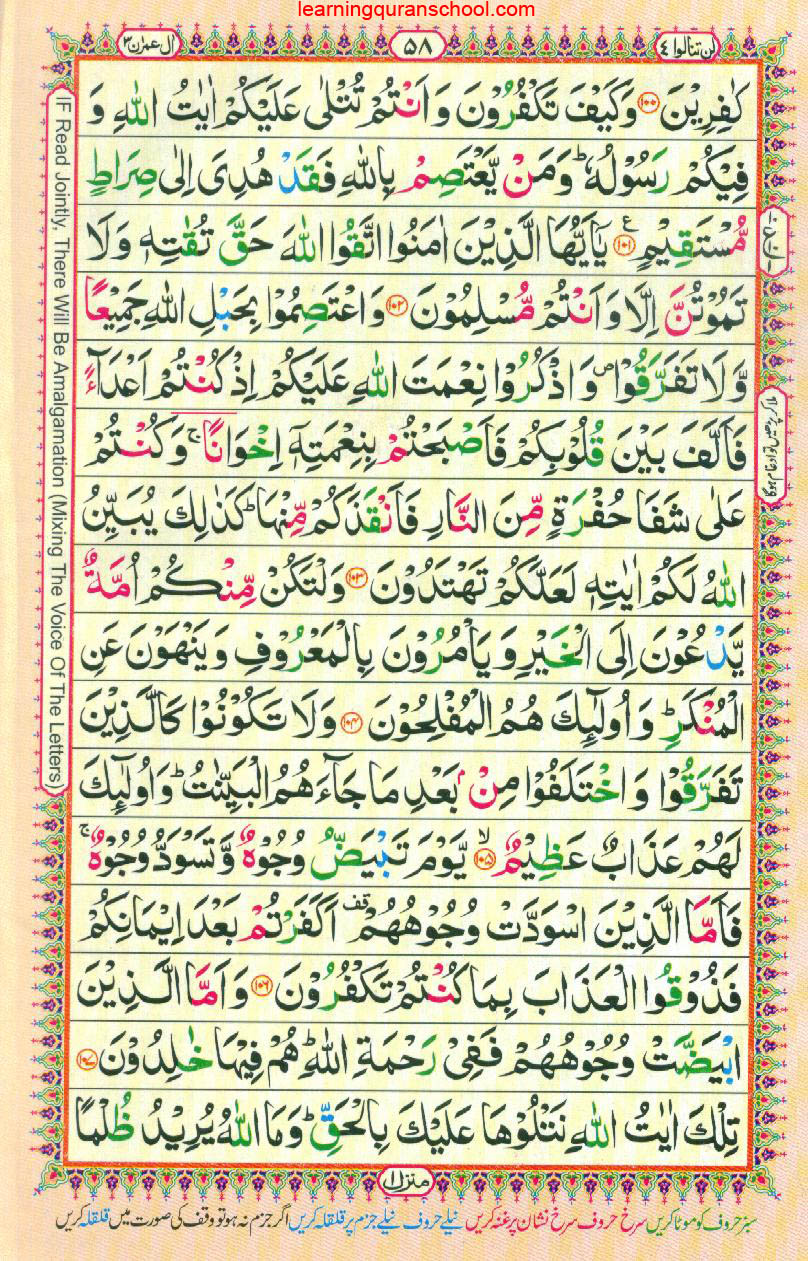 learningquranschool.com
لن تنالوا ٤
٥٨
ال عمرٰن ٣
كٰفِرِیْنَ ۝۱۰۰ وَكَیْفَ تَكْفُرُوْنَ وَ اَنْتُمْ تُتْلٰى عَلَیْكُمْ اٰیٰتُ اللّٰهِ وَ
فِیْكُمْ رَسُوْلُهٗ ؕ وَ مَنْ یَّعْتَصِمْ بِاللّٰهِ فَقَدْ هُدِیَ اِلٰى صِرَاطٍ
مُّسْتَقِیْمٍ ۝۱۰۱ یٰۤاَیُّهَا الَّذِیْنَ اٰمَنُوا اتَّقُوا اللّٰهَ حَقَّ تُقٰتِهٖ وَ لَا
تَمُوْتُنَّ اِلَّا وَ اَنْتُمْ مُّسْلِمُوْنَ ۝۱۰۲ وَ اعْتَصِمُوْا بِحَبْلِ اللّٰهِ جَمِیْعًا
وَّ لَا تَفَرَّقُوْا ۪ وَ اذْكُرُوْا نِعْمَتَ اللّٰهِ عَلَیْكُمْ اِذْ كُنْتُمْ اَعْدَآءً
فَاَلَّفَ بَیْنَ قُلُوْبِكُمْ فَاَصْبَحْتُمْ بِنِعْمَتِهٖۤ اِخْوَانًا ۚ وَ كُنْتُمْ
عَلٰى شَفَا حُفْرَةٍ مِّنَ النَّارِ فَاَنْقَذَكُمْ مِّنْهَا ؕ كَذٰلِكَ یُبَیِّنُ
اللّٰهُ لَكُمْ اٰیٰتِهٖ لَعَلَّكُمْ تَهْتَدُوْنَ ۝۱۰۳ وَلْتَكُنْ مِّنْكُمْ اُمَّةٌ
یَّدْعُوْنَ اِلَى الْخَیْرِ وَ یَاْمُرُوْنَ بِالْمَعْرُوْفِ وَ یَنْهَوْنَ عَنِ
الْمُنْكَرِ ؕ وَ اُولٰٓىِٕكَ هُمُ الْمُفْلِحُوْنَ ۝۱۰۴ وَ لَا تَكُوْنُوْا كَالَّذِیْنَ
تَفَرَّقُوْا وَ اخْتَلَفُوْا مِنْۢ بَعْدِ مَا جَآءَهُمُ الْبَیِّنٰتُ ؕ وَ اُولٰٓىِٕكَ
لَهُمْ عَذَابٌ عَظِیْمٌ ۝۱۰۵ۙ یَّوْمَ تَبْیَضُّ وُجُوْهٌ وَّ تَسْوَدُّ وُجُوْهٌ ۚ
فَاَمَّا الَّذِیْنَ اسْوَدَّتْ وُجُوْهُهُمْ قف اَكَفَرْتُمْ بَعْدَ اِیْمَانِكُمْ
فَذُوْقُوا الْعَذَابَ بِمَا كُنْتُمْ تَكْفُرُوْنَ ۝۱۰۶ وَ اَمَّا الَّذِیْنَ
ابْیَضَّتْ وُجُوْهُهُمْ فَفِیْ رَحْمَةِ اللّٰهِ ؕ هُمْ فِیْهَا خٰلِدُوْنَ ۝۱۰۷
تِلْكَ اٰیٰتُ اللّٰهِ نَتْلُوْهَا عَلَیْكَ بِالْحَقِّ ؕ وَ مَا اللّٰهُ یُرِیْدُ ظُلْمًا
منزل ۱
سبز حروف کو موٹا کریں سرخ حروف سرخ نشان پر غنہ کریں نیلے حروف نیلے جزم پر قلقلہ کریں اگر جزم نہ ہو تو وقف کی صورت میں قلقلہ کریں
IF Read Jointly, There Will Be Amalgamation (Mixing The Voice Of The Letters)